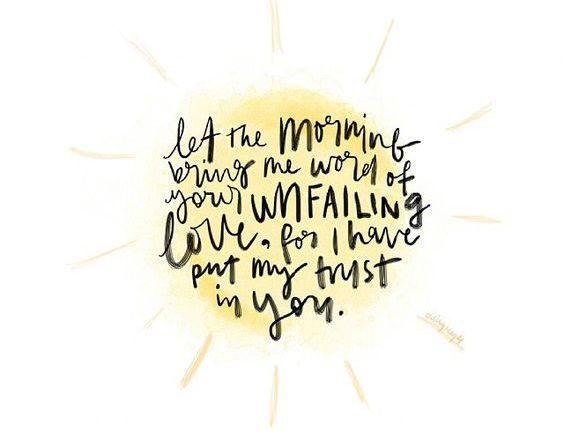 let the morning
bring me word of
your UNFAILING
love, for I have
put my trust
in you.